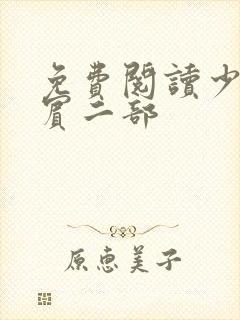 免費閱讀少
賓二部
原惠美子